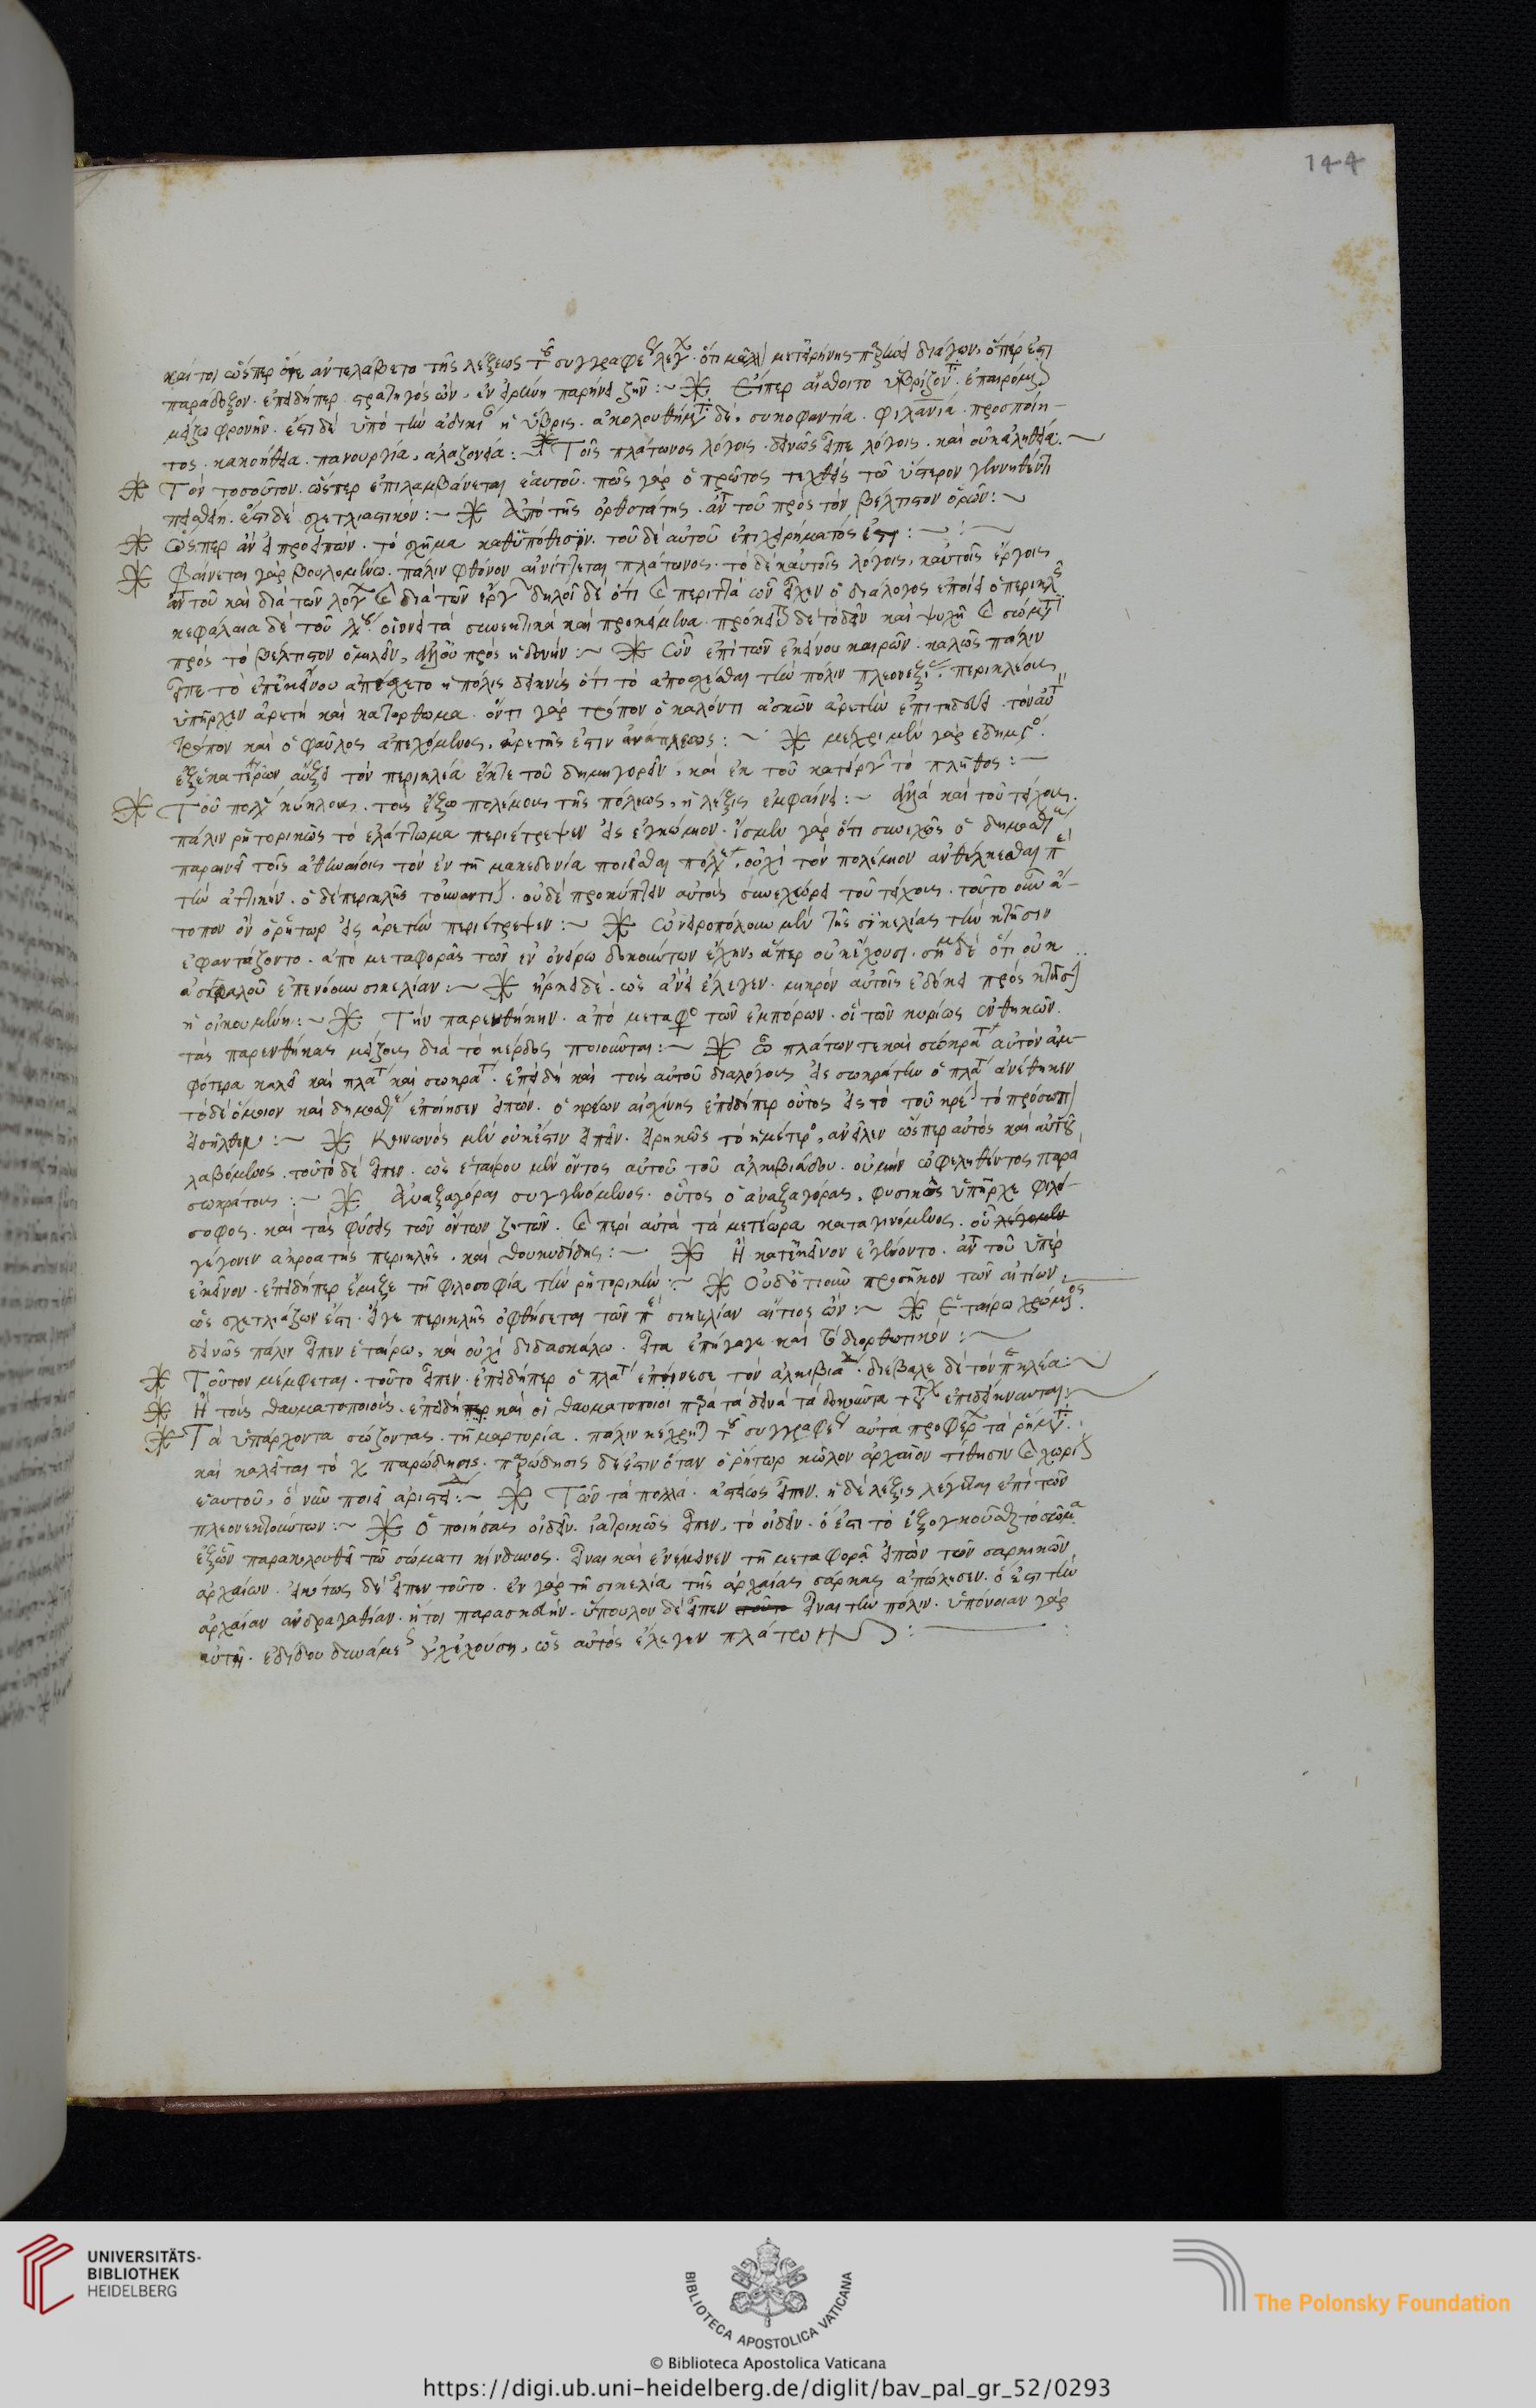 144
καί τοι ὥσπερ ἀντελάβετο τῆς λέξεως συγγραφε λεγ. ὅτι διάγων, ὅπερ ἐστι
παράδοξον. ἐπειδήπερ στρατηγὸς ὢν, ἐν εἰρήνη παρήνει ζῆν :~ ※ Εἴπερ αἴσθοιτο ὑβρίζον. ἐπαιρόμε
μεῖζο φρονῆν. ἔστι δὲ ὑπὸ τὴν ἀδικί ἡ ὕβρις. ἀκολουθήμ δὲ, συκοφαντία. φιλανιά. προσποίη-
τος. κακοήθεια. πανουργία, ἀλαζονεία :~ ※ Τοῖς πλάτωνος λόγοις. δεινῶς εἶπε λόγοις. καὶ οὐκ ἀληθεία. ~
※ Τὸν τοσοῦτον. ὥσπερ ἐπιλαμβάνεται ἑαυτοῦ. πῶς γὰρ ὁ πρῶτος τεχθεὶς τῶ ὕστερον γεννηθέντι
πεισθείη. ἔστι δὲ σχετλιαστικόν :~ ※ Ἀπὸ τῆς ὀρθοτάτης. ἀντ τοῦ πρὸς τὸν βέλτιστον ὁρῶν :~
※ Ὥσπερ ἂν εἰ προειπών. τὸ σχῆμα καθ ὑπόθεσϊν. τοῦ δὲ αὐτοῦ ἐπιχειρήματός ἐστι :~
※ Φαίνεται γὰρ βουλομένω. πάλιν φθόνον αἰνίττεται πλάτωνος. τὸ δὲ κ αὐτοῖς λόγοις, κ αὐτοῖς ἔργοις
ἀντ τοῦ καὶ διὰ τῶν λογ καὶ διὰ τῶν ἔργ δηλοῖ δὲ ὅτι καὶ περιττὰ ὧν εἶχεν ὁ διάλογος ἐποίει ὁ περικλ
κεφάλαια δὲ τοῦ λγ. οἱονεὶ τὰ συνεκτικὰ καὶ προκείμενα. πρόκειτ δὲ τὸ δεῖν καὶ ψυχῆ καὶ σώμτ
πρὸς τὸ βέλτιστον ὁμιλεῖν, ἀλλ οὐ πρὸς ἡδονήν :~ ※ Ὧν ἐπὶ τῶν ἐκείνου καιρῶν. καλῶς πάλιν
εἶπε τὸ ἐπ ἐκείνου ἀπείχετο ἡ πόλις δεικνὺς ὅτι τὸ ἀποσχέσθαι τὴν πόλιν πλεονεξί. περικλέους
ὑπῆρχεν ἀρετὴ καὶ κατόρθωμα. ὅντι γὰρ τρόπον ὁ καλόν τι ἀσκῶν ἀρετὴν ἐπιτηδεύει. τὸν αὐτ
τρόπον καὶ ὁ φαῦλος ἀπεχόμενος, ἀρετῆς ἐστιν ἀνάπλεως :~ ※ μέχρι μὲν γὰρ ἐδημγ.
ἐξ ἑκατέρων αὔξει τὸν περικλέα ἔκ τε τοῦ δημηγορεῖν, καὶ ἐκ τοῦ κατείργ τὸ πλῆθος :~
※ Τοῦ πολγ κύκλους. τοὺς ἔξω πολέμους τῆς πόλεως, ἡ λέξις ἐμφαίνει :~ ἀλλὰ καὶ τοῦ τείχους.
πάλιν ῥητορικῶς τὸ ἐλάττωμα περιέτρεψεν εἰς ἐγκώμιον. ἴσμεν γὰρ ὅτι συνεχῶς ὁ δημοσθ
παραινεῖ τοῖς ἀθηναίοις τὸν ἐν τῆ μακεδονία ποιεῖσθαι πόλ, οὐχὶ τὸν πολέμιον ἀνθέλκεσθαι π
τὴν ἀττικήν. ὁ δὲ περικλῆς τοὐναντί. οὐδὲ προκύπτειν αὐτοὺς συνεχώρει τοῦ τείχους. τοῦτο οὖν ἄ-
τοπον ὂν ὁ ῥήτωρ εἰς ἀρετὴν περιέτρεψεν :~ ※ Ὠνειροπόλουν μὲν τῆς σϊκελίας τὴν κτῆσιν
ἐφαντάζοντο. ἀπὸ μεταφορᾶς τῶν ἐν ὀνείρω δοκούντων ἔχειν, ἅπερ οὐκ ἔχουσι. σημ δὲ ὅτι οὐκ
ἀσφαλοῦ ἐπενόουν σικελίαν :~ ※ ἤρκει δὲ. ὡς ἀνεὶ ἔλεγεν. μικρὸν αὐτοῖς ἐδόκει πρὸς κτῆσ
ἡ οἰκουμένη :~ ※ Τὴν παρενθήκην. ἀπὸ μεταφο τῶν ἐμπόρων. οἳ τῶν κυρίως ἐνθηκῶν.
τὰς παρενθήκας μείζους διὰ τὸ κέρδος ποιοῦνται :~ ※ Ὦ πλάτων τε καὶ σώκρατ αὐτὸν ἀμ-
φότερα καλεῖ καὶ πλατ καὶ σωκρατ. ἐπειδὴ καὶ τοὺς αὐτοῦ διαλόγους εἰς σωκράτην ὁ πλατ ἀνέθηκεν
τὸ δὲ ὅμοιον καὶ δημοσθ ἐποίησεν εἰπών. ὁ κρέων αἰσχίνης ἐπειδήπερ οὗτος εἰς τὸ τοῦ κρέ τὸ πρόσωπ
εἰσῆλθεν :~ ※ Κοινωνὸς μὲν οὐκ ἔστιν εἰπεῖν. εἰρηκὼς τὸ ἡμέτερο, ἀνεῖλεν ὥσπερ αὐτὸς καὶ αὑτοῦ
λαβόμενος. τοῦτο δὲ εἶπεν. ὡς ἑταίρου μὲν ὄντος αὐτοῦ τοῦ ἀλκιβιάδου. οὐ μὴν ὠφεληθέντος παρὰ
σωκράτους :~ ※ Ἀναξαγόραι συγγενόμενος. οὗτος ὁ ἀναξαγόρας, φυσικὸς ὑπῆρχε φιλό-
σοφος. καὶ τὰς φύσεις τῶν ὄντων ζητῶν. καὶ περὶ αὐτὰ τὰ μετέωρα καταγινόμενος. οὗ λέγομεν
γέγονεν ἀκροατὴς περικλῆς. καὶ θουκυδίδης :~ ※ Ἢ κατ ἐκεῖνον ἐγένοντο. ἀντ τοῦ ὑπὲρ
ἐκεῖνον. ἐπειδήπερ ἔμιξε τῆ φιλοσοφία τὴν ῥητορικήν :~ ※ Οὐδ ὁτιοῦν προσῆκον τῶν αἰτίων.
ὡς σχετλιάζων ἐστι. εἴγε περικλῆς ὀφθήσεται τῶν π σικελίαν αἴτιος ὤν :~ ※ Ἑταίρω χρώμενος.
δεινῶς πάλιν εἶπεν ἑταίρω, καὶ οὐχὶ διδασκάλω. εἶτα ἐπήγαγε καὶ τὸ διορθωτικόν :~
※ Τοῦτον μέμφεται. τοῦτο εἶπεν. ἐπειδήπερ ὁ πλατ ἐπήνεσε τὸν ἀλκιβια. διέβαλε δὲ τὸν π κλέα :~
※ Ἢ τοὺς θαυματοποιούς. ἐπειδήπερ καὶ οἱ θαυματοποιοὶ π τὰ δεινὰ τὰ δοκοῦντα ἐπιδείκνυνται :~
※ Τὰ ὑπάρχοντα σώζοντας. τῆ μαρτυρία. πάλιν κέχρητ συγγραφε αὐτὰ προφερ τὰ ῥήμτ.
καὶ καλεῖται τὸ χ παρώδησις. παρώδησις δέ ἐστιν ὅταν ὁ ῥήτωρ κῶλον ἀρχαῖον τίθησιν καὶ χωρι
ἑαυτοῦ, ὃ νῦν ποιεῖ ἀριστεί :~ ※ Τῶν τὰ πολλά. ἀστείως εἶπεν. ἡ δὲ λέξις λέγεται ἐπὶ τῶν
πλεονεκτούντων :~ ※ Ὁ ποιήσας οἰδεῖν. ἰατρικῶς εἶπεν, τὸ οἰδεῖν. ὅ ἐστι τὸ ἐξογκοῦσθαι τὸ σῶμα
ἐξ ὧν παρακολουθεῖ τῶ σώματι κίνδυνος. εἶναι καὶ ἐνέμεινεν τῆ μεταφορᾶ εἰπὼν τῶν σαρκικῶν
ἀρχαίων. εἰκότως δὲ εἶπεν τοῦτο. ἐν γὰρ τῆ σικελία τῆς ἀρχαίας σάρκας ἀπώλεσεν. ὅ ἐστι τὴν
ἀρχαίαν ἀνδραγαθίαν. ἤτοι παρασκευήν. ὕπουλον δὲ εἶπεν τοῦτο εἶναι τὴν πόλιν. ὑπόνοιαν γὰρ
αὐτῆ. ἐδίδου δυνάμε, ὡς αὐτὸς ἔλεγεν πλάτων :~
UNIVERSITÄTS-
BIBLIOTHEK
HEIDELBERG
BIBLIOTECA APOSTOLICA VATICANA
The Polonsky Foundation
© Biblioteca Apostolica Vaticana
https://digi.ub.uni-heidelberg.de/diglit/bav_pal_gr_52/0293